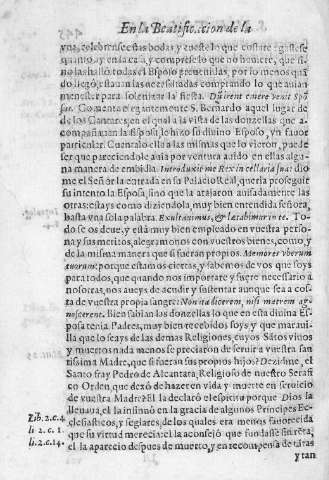 En la Beatificacion de la
vna, celebrense estas bodas y cueste lo que costare: gastese
quanto ay en la casa, y comprese lo que no huuiere, que si
no las hallò todas el Esposo preuenidas, por lo menos quã
do llegò, estauan las necessitadas comprando lo que auian
menester para solenizar la fiesta. Dũ irent emere venit Spõ
sus. Comenta elegantemente S. Bernardo aquel lugar de
de los Cantares, en el qual a la vista de las donzellas que a-
compañauan la Esposa, le hizo su diuino Esposo, vn fauor
particular. Cuentalo ella a las mismas que lo vieron, puede
ser que pareciendole auia por ventura auido en ellas algu-
na manera de embidia. Introduxit me Rex in cellaria sua: dio
me el Señor la entrada en su Palacio Real, queria proseguir
su intento la Esposa, sino que la atajaron auisadamente las
otras: està ya como diziendola, muy bien entendida señora,
basta vna sola palabra. Exultauimus, & lætabimur in te. To
do se os deue, y està muy bien empleado en vuestra perso-
na y sus meritos, alegramonos con vuestros bienes, como, y
de la misma manera que si fueran propios. Memores vberum
tuorum: porque estamos ciertas, y sabemos de vos que soys
para todos, que quando nos importare y fuere necessario a
nosotras, nos aueys de acudir y sustentar aunque sea a cos
ta de vuestra propia sangre: Non ita dicerem, nisi matrem ag-
noscerem. Bien sabian las donzellas lo que en esta diuina Es-
posa tenia Padres, muy bien recebidos soys y que maraui-
lla que lo seays de las demas Religiones, cuyos Sãtos viuos
y muertos nada menos se preciaron de seruir a vuestra san
tissima Madre, que si fueran sus propios hijos? Dezidme, el
Santo fray Pedro de Alcantara, Religioso de nuestro Serafi
co Orden, que dexò de hazer en vida y muerte en seruicio
de vuestra Madre? El la declarò el espiritu porque Dios la
lleuaua, el la insinuò en la gracia de algunos Principes Ec-
clesiasticos, y seglares, de los quales era menos fauorecida
Lib. 2. c. 4.
li 2. c. 1. que su virtud merecia: el la aconsejò que fundasse sin renta,
li. 2. c. 14. el la aparecio despues de muerto, y en recompensa de tãtas
y tan